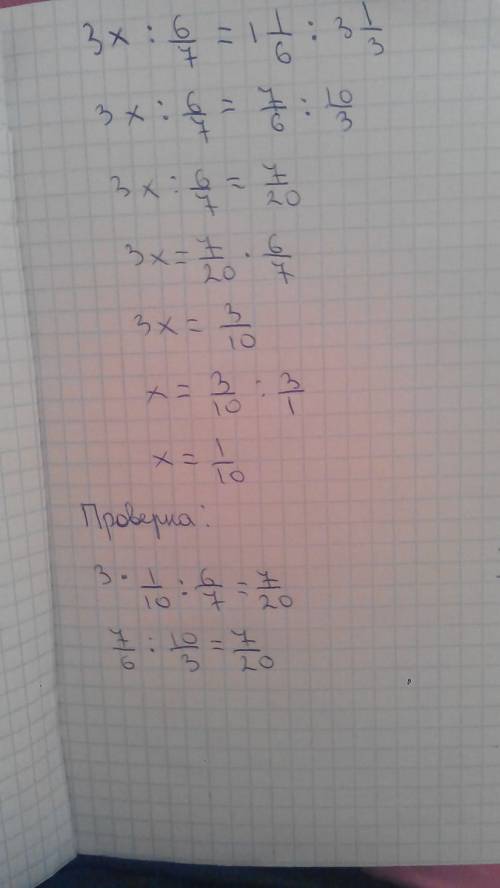 3x : 6/7 = 1 1/6 : 3 1/3
3x : 6/7 = 7/6 : 10/3
3x : 6/7 = 7/20
3x = 7/20 · 6/7
3x = 3/10
x = 3/10 : 3/1
x = 1/10
Проверка:
3 · 1/10 : 6/7 = 7/20
7/6 : 10/3 = 7/20